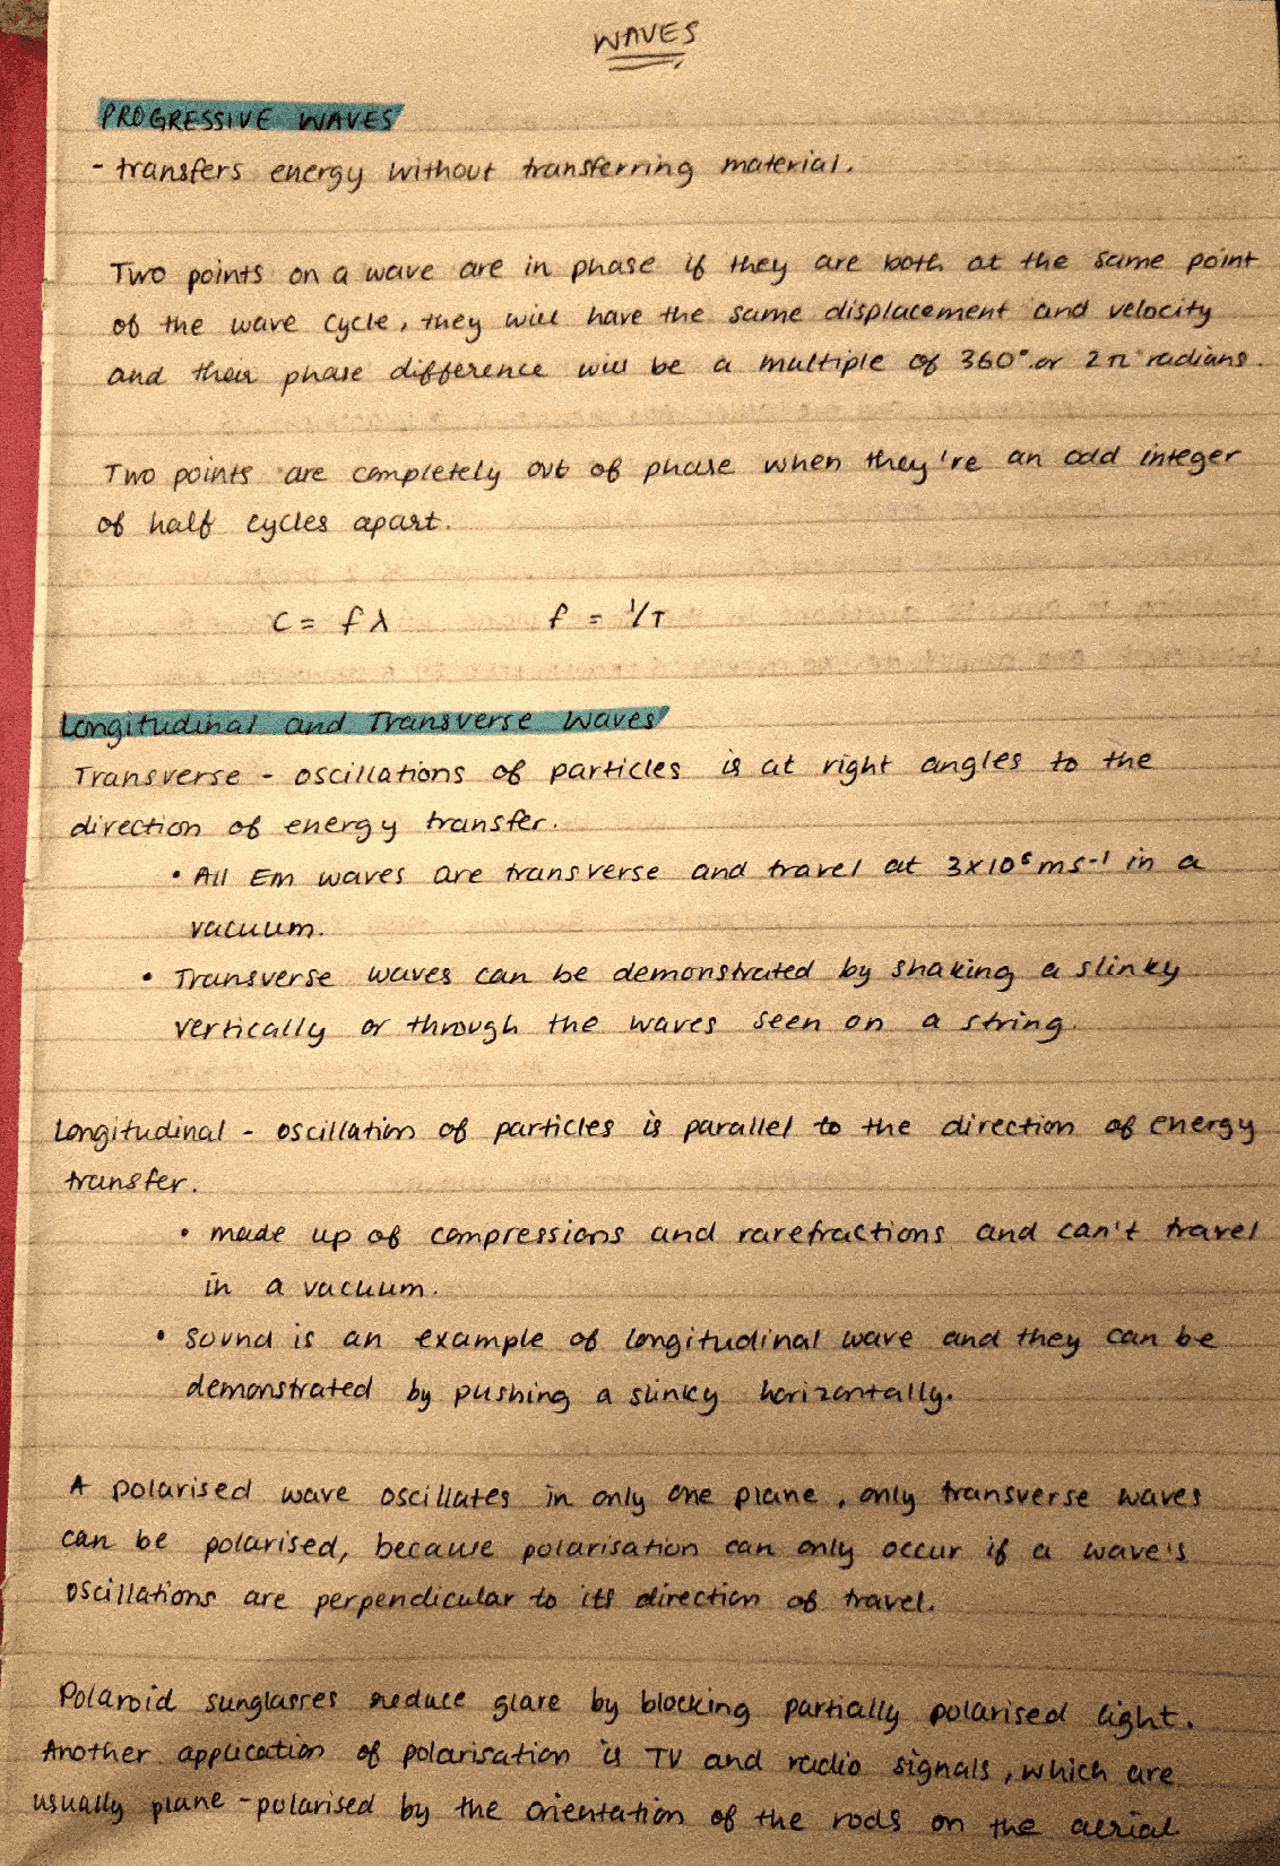 WAVES
PROGRESSIVE WAVES
- transfers energy without transferring material.
Two points on a wave are in phase if they are both at the same point
of the wave cycle, they will have the same displacement and velocity
and their phase difference will be a multiple of 360° or 2π radians.
Two points are completely out of phase when they're an odd integer
of half cycles apart.
c = fλ f = 1/T
Longitudinal and Transverse Waves
Transverse - oscillations of particles is at right angles to the
direction of energy transfer.
• All Em waves are transverse and travel at 3x10⁶ms-¹ in a
vacuum.
• Transverse waves can be demonstrated by shaking a slinky
vertically or through the waves seen on a string.
Longitudinal - oscillation of particles is parallel to the direction of energy
transfer.
• made up of compressions and rarefractions and can't travel
in a vacuum.
• sound is an example of longitudinal wave and they can be
demonstrated by pushing a slinky horizontally.
A polarised wave oscillates in only one plane, only transverse waves
can be polarised, because polarisation can only occur if a wave's
oscillations are perpendicular to its direction of travel.
Polaroid sunglasses reduce glare by blocking partially polarised light.
Another application of polarisation is TV and radio signals, which are
usually plane-polarised by the orientation of the rods on the aerial